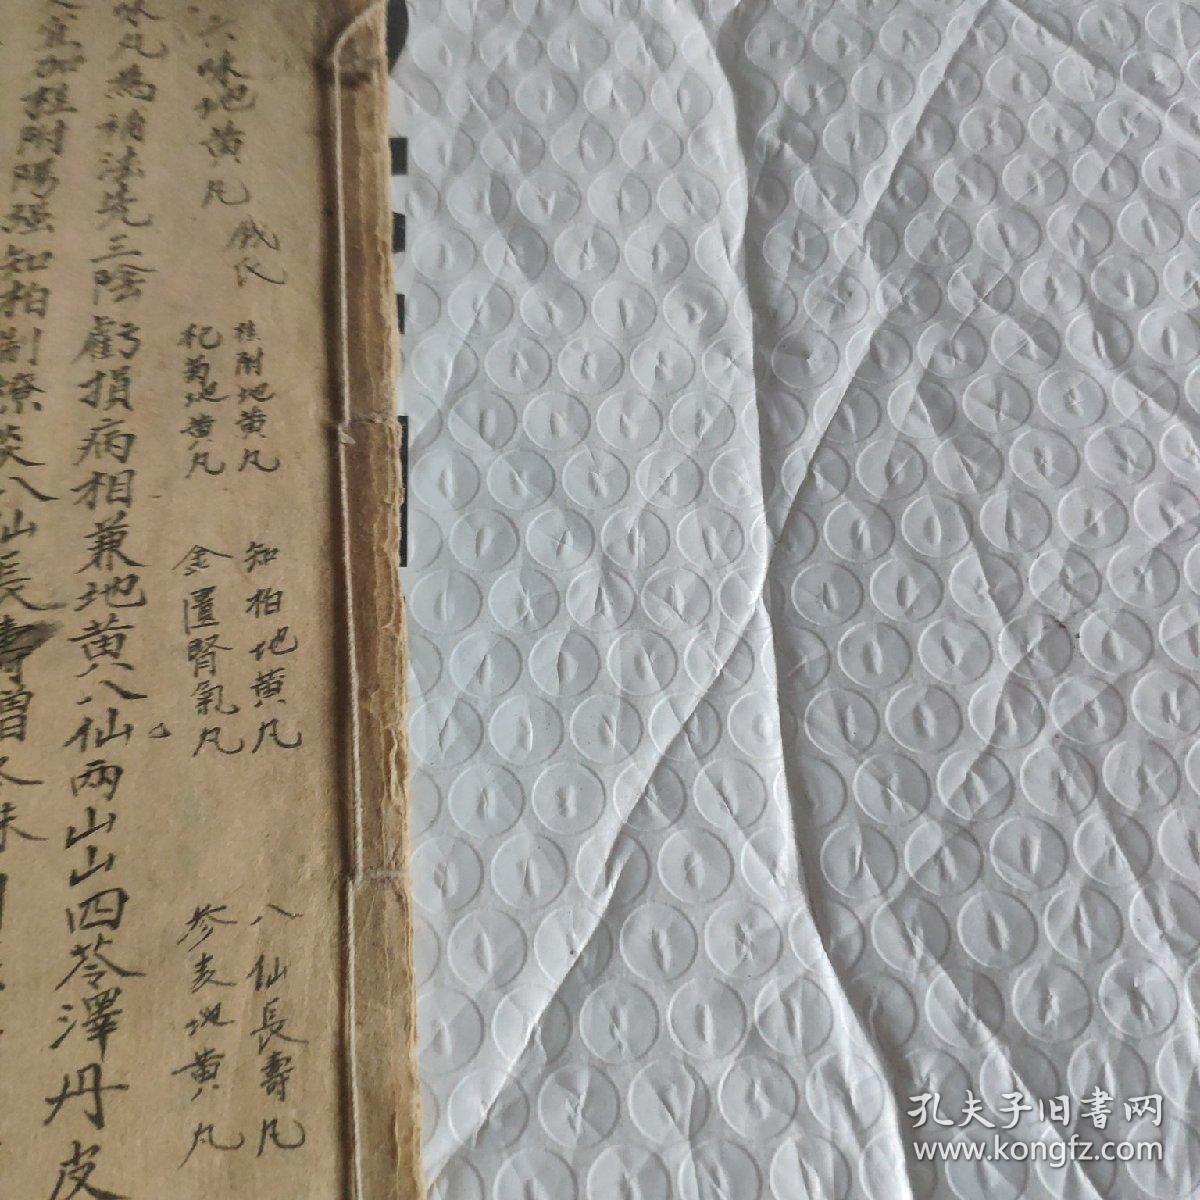 六味地黄凡 钱氏
桂附地黄凡
杞菊地黄凡
知柏地黄凡
金匱腎氣凡
八仙長壽凡
参麦地黄凡
水凡為補法先三陰虧損病相兼地黄八仙兩山山四苓澤丹皮
宜加桂附陽强知柏制療
八仙長壽增
孔夫子旧書网
www.kongfz.com